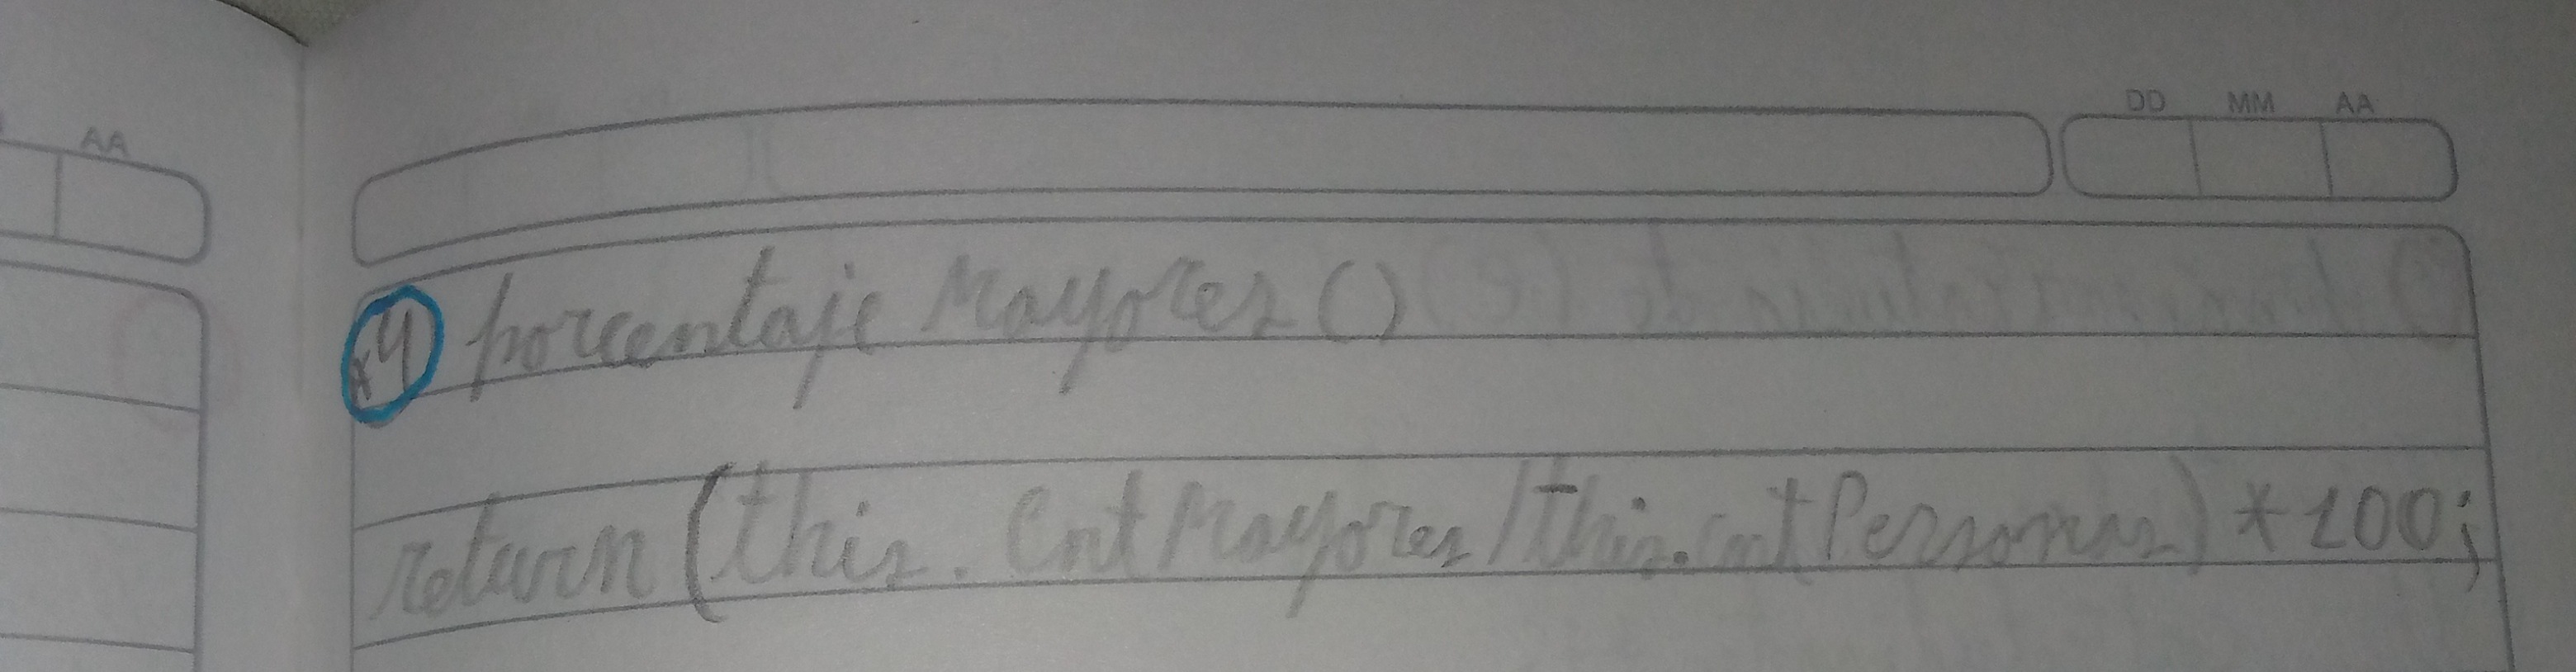 AA
DD MM AA
*4 porcentaje Mayores ()
return (this. CntMayores/this.cntPersonas) *100;